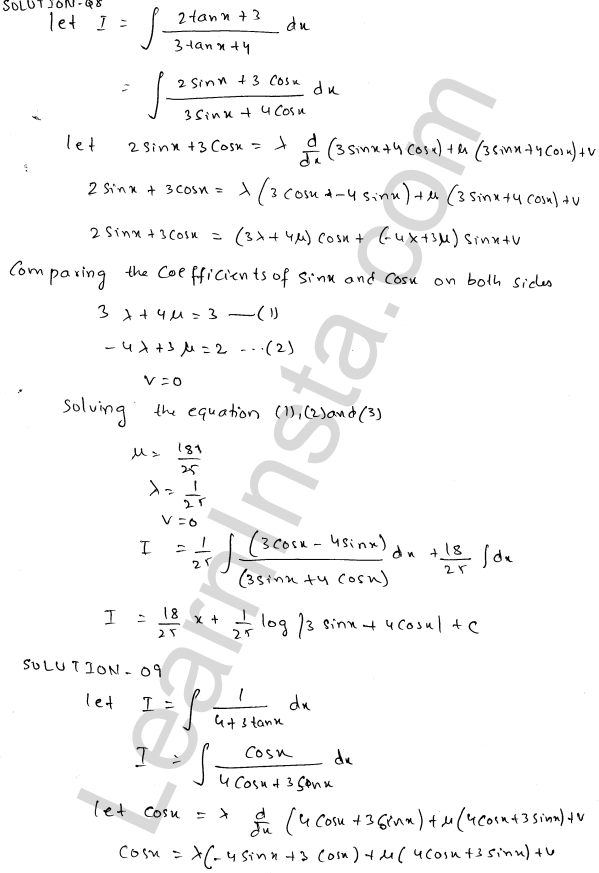 SOLUTION-Q8
let I = ∫ (2tanx + 3)/(3tanx + 4) dx
= ∫ (2 sinx + 3 cosx)/(3 sinx + 4 cosx) dx
let 2 sinx + 3 cosx = λ d/dx (3 sinx + 4 cosx) + μ (3 sinx + 4 cosx) + v
2 sinx + 3 cosx = λ (3 cosx + -4 sinx) + μ (3 sinx + 4 cosx) + v
2 sinx + 3 cosx = (3λ + 4μ) cosx + (-4λ + 3μ) sinx + v
Comparing the coefficients of sinx and cosx on both sides
3 λ + 4μ = 3 —(1)
-4λ + 3 μ = 2 ---(2)
v = 0
Solving the equation (1), (2) and (3)
μ = 18/25
λ = 1/25
v = 0
I = 1/25 ∫ (3 cosx - 4 sinx)/(3 sinx + 4 cosx) dx + 18/25 ∫ dx
I = 18/25 x + 1/25 log |3 sinx + 4 cosx| + c
SOLUTION-09
let I = ∫ 1/(4 + 3 tanx) dx
I = ∫ cosx/(4 cosx + 3 sinx) dx
let cosx = λ d/dx (4 cosx + 3 sinx) + μ (4 cosx + 3 sinx) + v
cosx = λ (-4 sinx + 3 cosx) + μ (4 cosx + 3 sinx) + v
LearnInsta.com